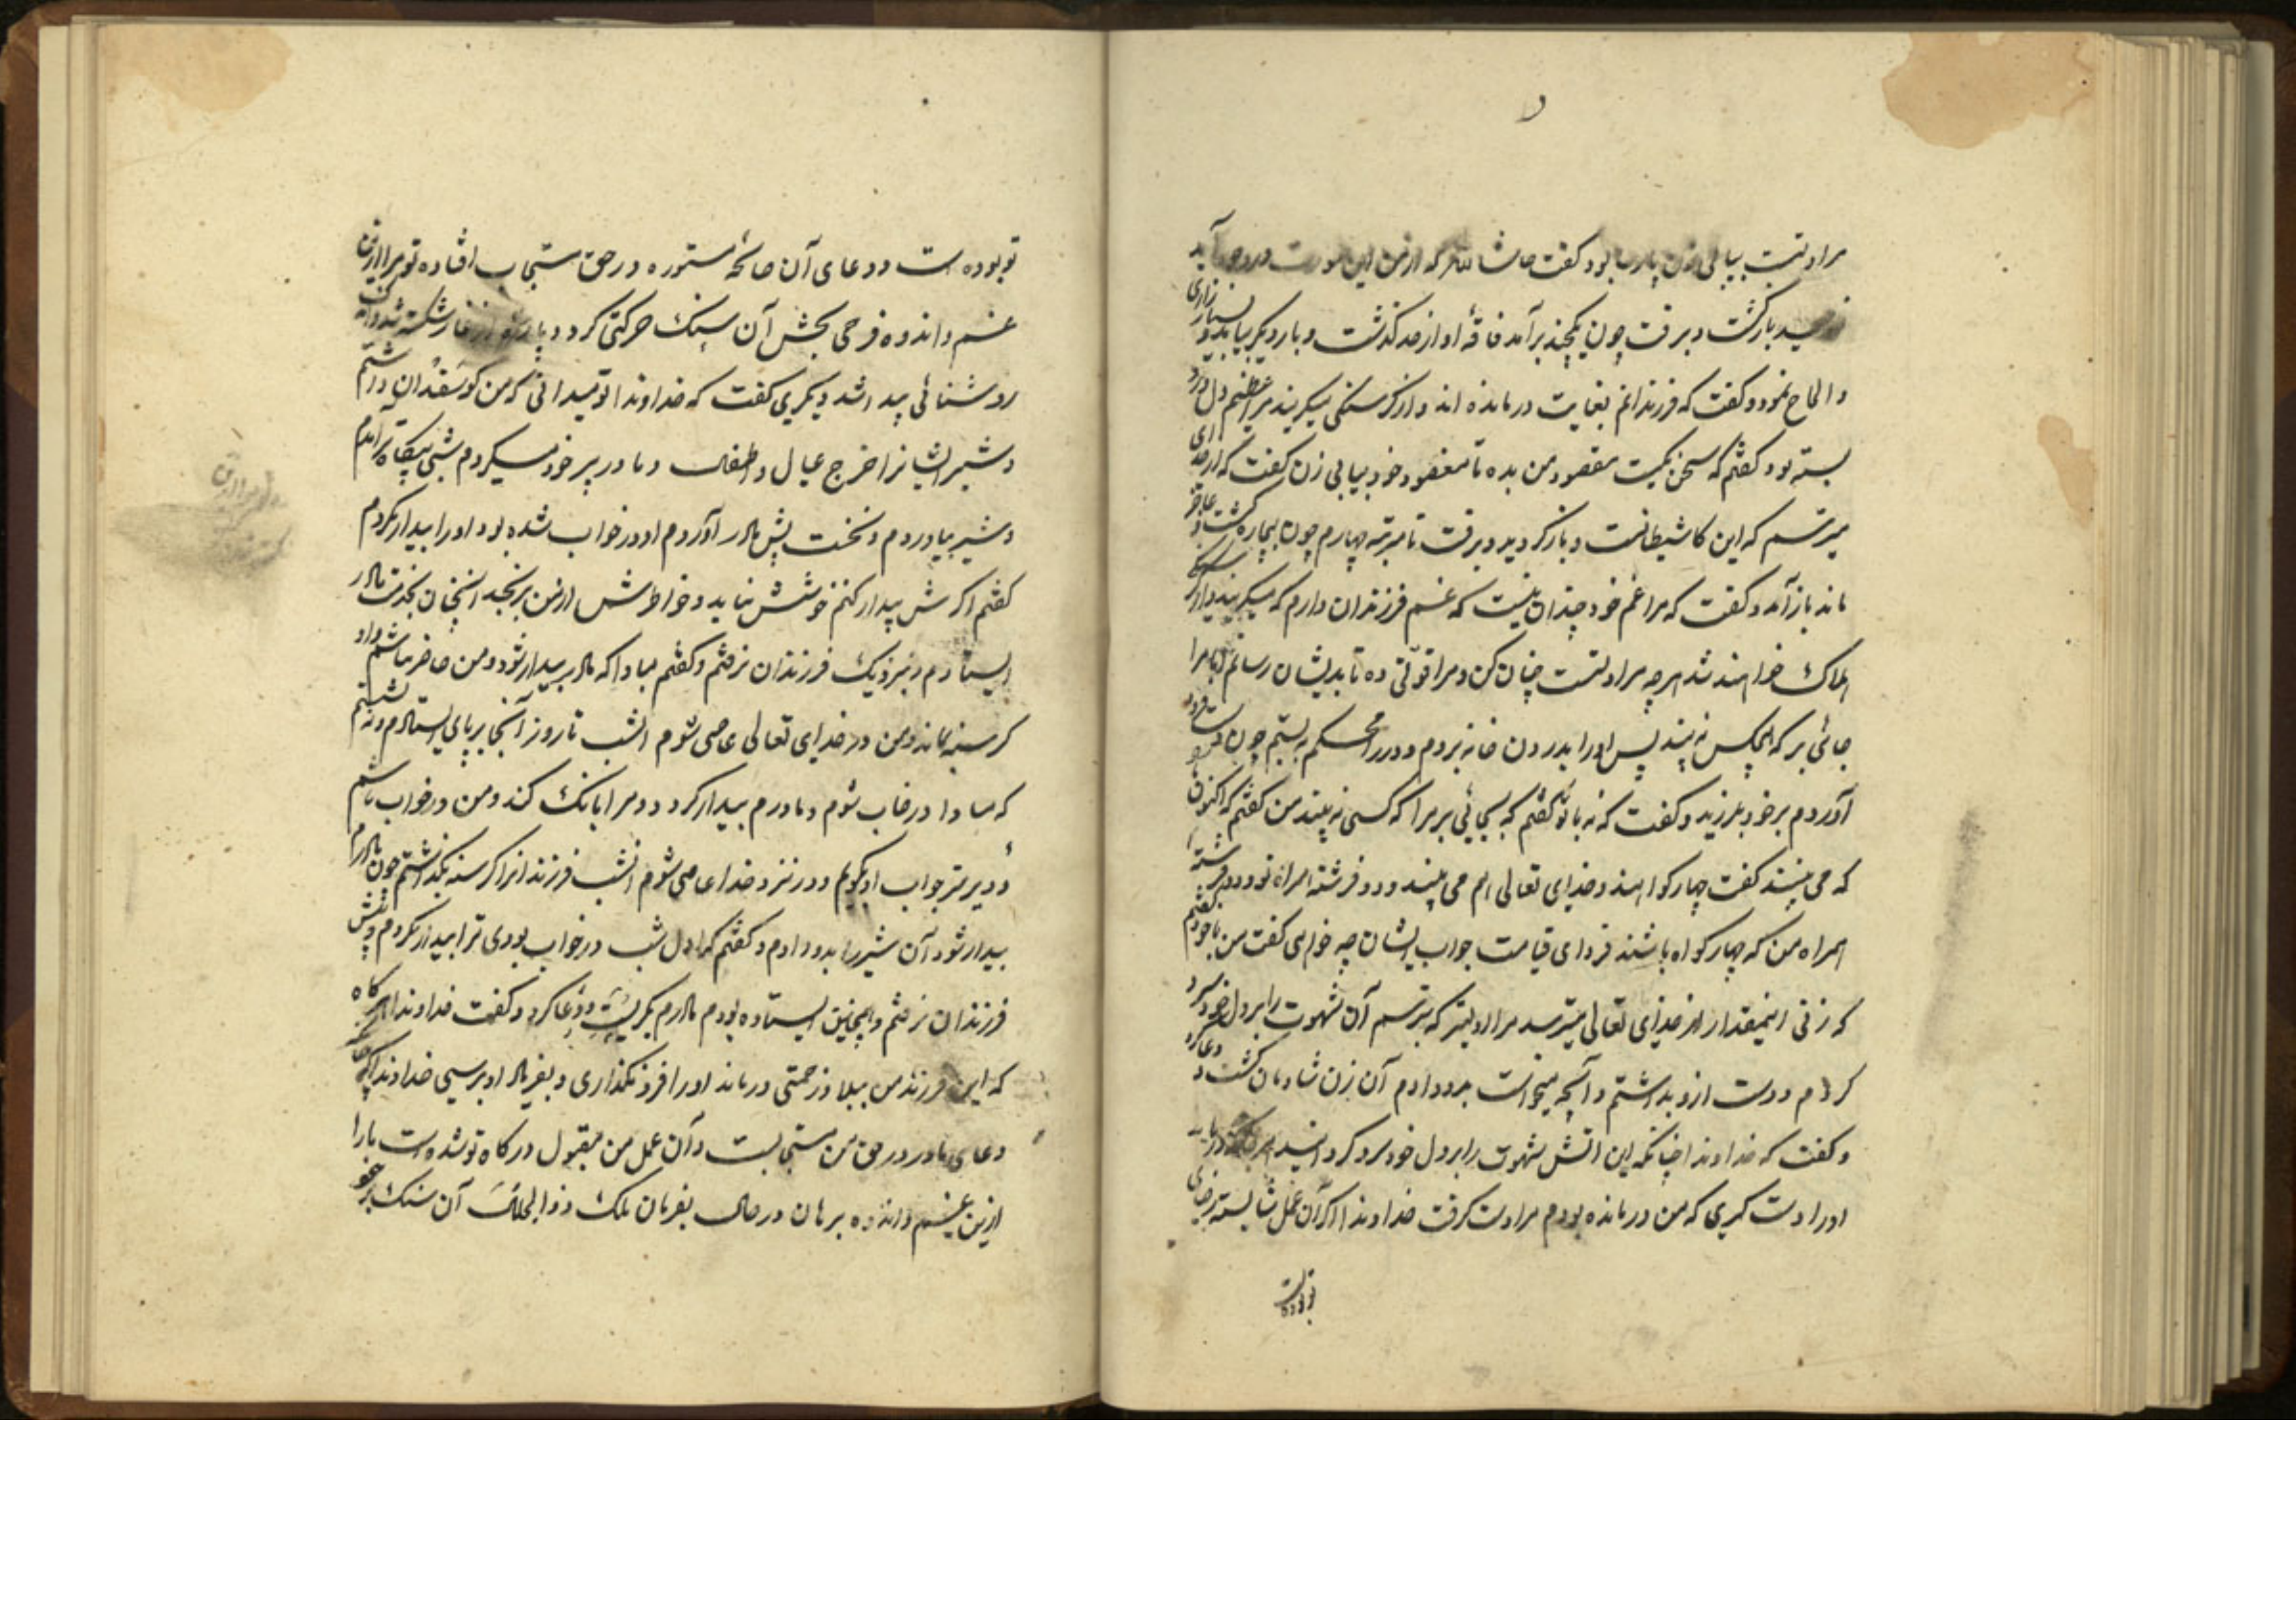 مراد تست بیابی زن پارسا بود کفت حاشا لله که از من این صورت در وجود آید
بازکشت و برفت چون یکچند برآمد فاقهٔ او از حد کذشت و بار دیکر بیامد و بسیار زاری
و الحاح نمود و کفت که فرزندانم بغایت درمانده اند و از کرسنکی میکریند مرا دل
بسته بود کفتم که سخن یکیست مقصود من بده تا مقصود خود بیابی زن کفت که از خدای
میترسم که این کار شیطانست و باز کردید و برفت تا مرتبه چهارم چون بیچاره کشت و عاجز
ماند باز آمد و کفت که مرا غم خود چندان نیست که غم فرزندان دارم که میکریند و از
هلاک خواهند شد هرچه مراد تست چنان کن و مرا قوتی ده تا بدیشان رسانم اما مرا
جائی بر که هیچکس نه بیند پس او را بدرون خانه بردم و در را محکم به بستم چون دست
آوردم بر خود بلرزید و کفت که نه با تو کفتم که بجائی بر مرا که کسی نه بیند من کفتم که اکنون
که می بیند کفت چهار کواهند و خدای تعالی هم می بیند و دو فرشته همراه تو و دو فرشته
همراه من که چهار کواه باشند فردای قیامت جواب ایشان چه خواهی کفت من با خود کفتم
که زنی اینمقدار از خدای تعالی میترسد مرا اولیتر که بترسم آن شهوت را بر دل خود سرد
کردم و دست ازو بداشتم و آنچه میخواست بدو دادم آن زن شادمان کشت و دعا کرد
و کفت که خداوندا چنانکه این آتش شهوت را بر دل خود سرد کردانید
او را دست کیری که من درمانده بودم مرا دست کرفت خداوندا اکر آن عمل شایسته رضای
تو بوده است
تو بوده است و دعای آن صالحهٔ مستوره در حق مستجاب افتاده تو مرا ازین
غم و اندوه فرحی بخش آن سنک حرکتی کرد و پارهٔ از غار شکسته شد و اندک
روشنائی پیدا شد دیکری کفت که خداوندا تو میدانی که من کوسفندان داشتم
و شیر ایشانرا خرج عیال و اطفال و مادر پیر خود میکردم شبی بیکاه برآمدم
و شیر بیاوردم و نخست پیش مادر آوردم او در خواب شده بود او را بیدار نکردم
کفتم اکرش بیدار کنم خوشش نیاید و خواطرش از من برنجد همچنان بخدمت مادر
ایستادم و نزدیک فرزندان نرفتم و کفتم مبادا که مادر بیدار شود و من حاضر نباشم و او
کرسنه بماند و من در خدای تعالی عاصی شوم آنشب تا روز آنجا بر پای ایستادم و نه نشستم
که مبادا در خواب شوم و مادرم بیدار کردد و مرا بانک کند و من در خواب باشم
و دیرتر جواب او کویم و در نزد خدا عاصی شوم آنشب فرزندانرا کرسنه بکذاشتم چون مادرم
بیدار شود آن شیر را بدو دادم و کفتم که اول شب در خواب بودی ترا بیدار نکردم و پیش
فرزندان نرفتم و همچنین ایستاده بودم مادرم بکریست و دعا کرد و کفت خداوندا هرکاه
که این فرزند من ببلا و زحمتی درماند او را فرو نکذاری و بفریاد او برسی خداوندا
دعای مادر در حق من مستجابست و آن عمل من مقبول درکاه تو شده است ما را
ازین غم و اندوه برهان در حال بفرمان ملک ذوالجلال آن سنک بر خود